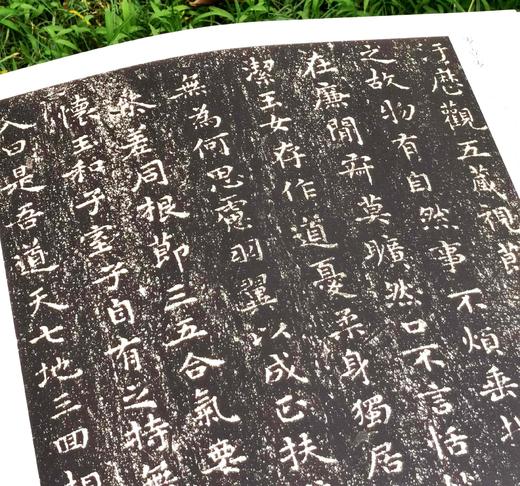 于歷觀五藏視節
之故物有自然事不煩垂
在廉間寂莫曠然口不言恬
潔玉女存作道憂柔身獨居
無為何思慮羽翼以成正扶
參差同根節三五合氣要
懷玉和子室子自有之持無
入日是吾道天七地三回相